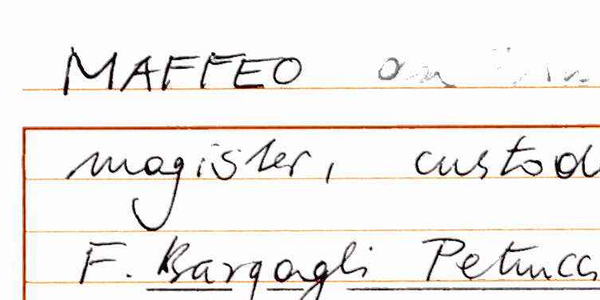 MAFFEO
magister, custod
F. Bargagli Petrucci